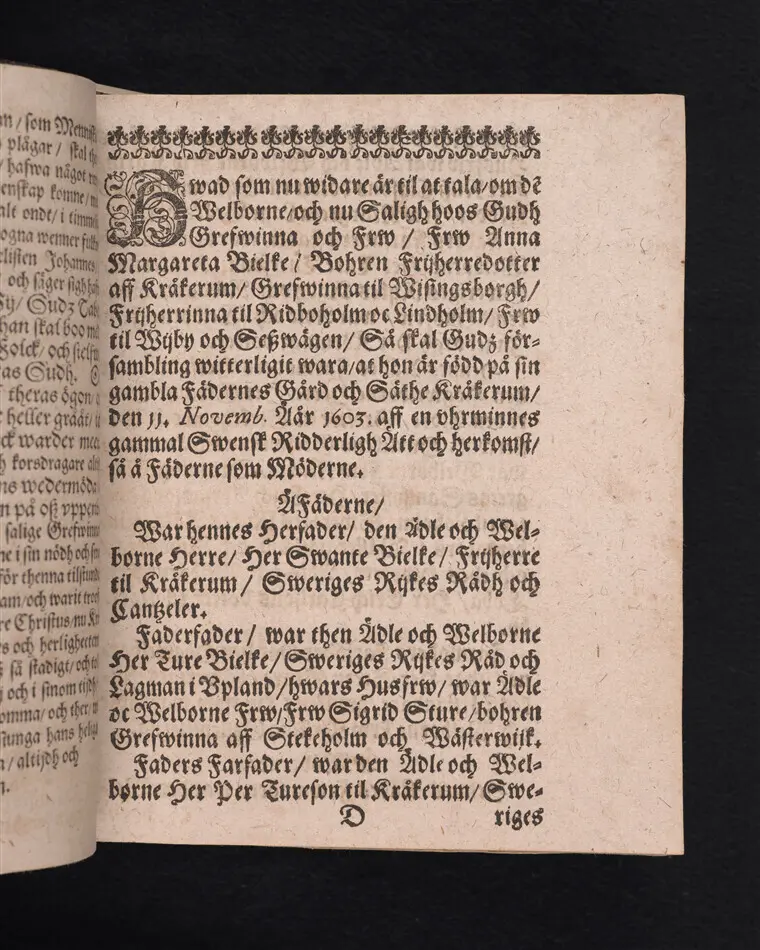 n/som Mennisk
plägar/ skal
hafwa något
enskap komne/
alt ondt/i
ogna wenner
listen Johannes
och säger
Sy/ Gudz
han skal boo
Folck/och
as Gudh.
theras ögon
heller grååt/
ck warder
korsdragare
ns wedermöda
n på oß vppen
salige Grefwin
ne i sin nödh och
för thenna
am/och warit
re Christus/nu
s och herligheten
så stadigt/och
och i sinom
omma/och ther
siunga hans
n/altijdh och
n.
Hwad som nu widare är til at tala/om dē
Welborne/och nu Saligh hoos Gudh
Grefwinna och Frw/ Frw Anna
Margareta Bielke/ Bohren Frijherredotter
aff Kråkerum/ Grefwinna til Wisingsborgh/
Frijherrinna til Ridboholm oc Lindholm/ Frw
til Wijby och Seßwägen/ Så skal Gudz för-
sambling witterligit wara/at hon är född på sin
gambla Fädernes Gård och Säthe Kråkerum/
den 11. Novemb. Åår 1603. aff en vhrminnes
gammal Swensk Ridderligh Ätt och herkomst/
så å Fäderne som Möderne.
Å Fäderne/
War hennes Herfader/ den Ädle och Wel-
borne Herre/ Her Swante Bielke/ Frijherre
til Kråkerum/ Sweriges Rijkes Rådh och
Cantzeler.
Faderfader/ war then Ädle och Welborne
Her Ture Bielke/Sweriges Rijkes Råd och
Lagman i Vpland/hwars Husfrw/ war Ädle
oc Welborne Frw/Frw Sigrid Sture/bohren
Grefwinna aff Stekeholm och Wästerwijk.
Faders Farfader/ war den Ädle och Wel-
borne Her Per Tureson til Kråkerum/ Swe-
D riges